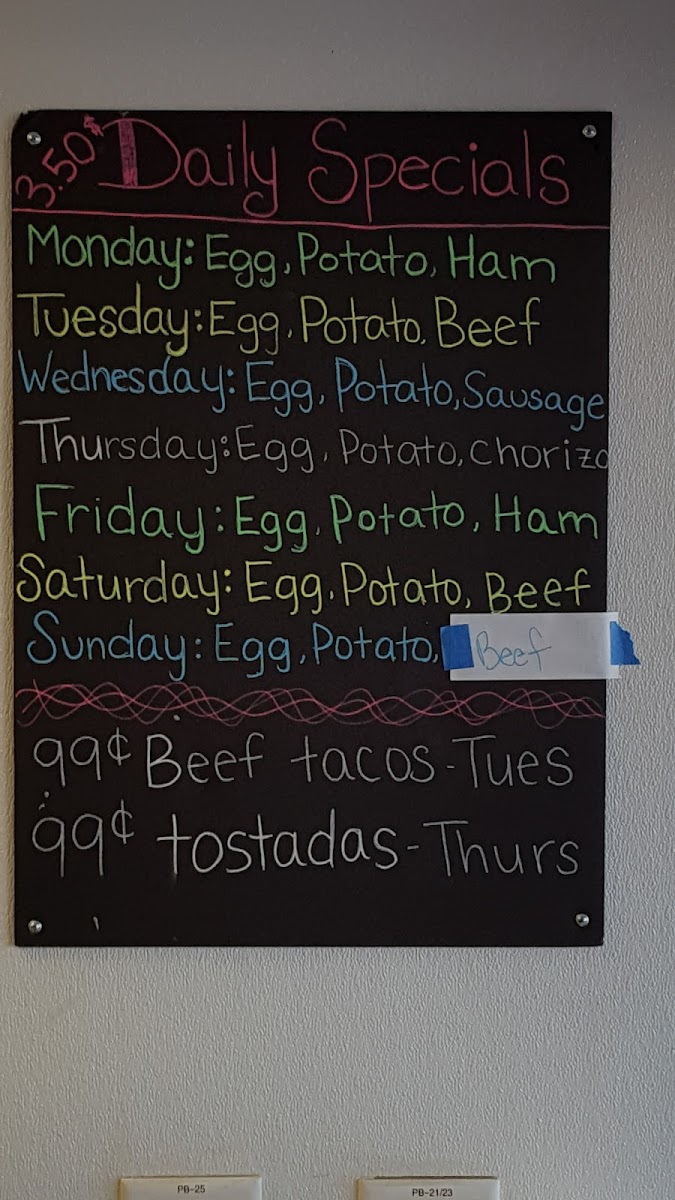 3.50$ Daily Specials
Monday: Egg, Potato, Ham
Tuesday: Egg, Potato, Beef
Wednesday: Egg, Potato, Sausage
Thursday: Egg, Potato, Chorizo
Friday: Egg, Potato, Ham
Saturday: Egg, Potato, Beef
Sunday: Egg, Potato, Beef
99¢ Beef tacos-Tues
99¢ tostadas-Thurs
PB-25
PB-21/23